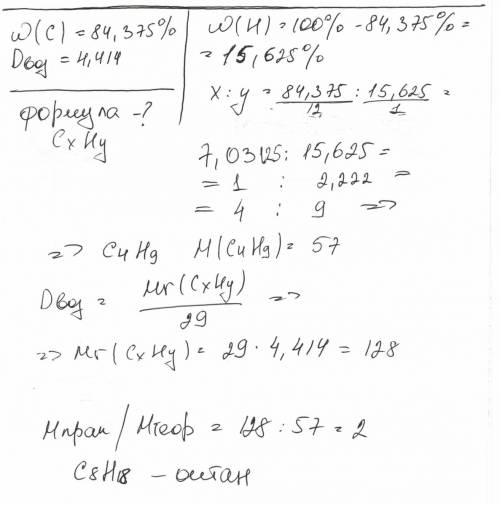 ω(C) = 84,375%
Dвоз = 4,414
формула - ?
CxHy
ω(H) = 100% - 84,375% =
= 15,625%
x : y = 84,375/12 : 15,625/1 =
7,03125 : 15,625 =
= 1 : 2,222 =
= 4 : 9 =>
=> C4H9 M(C4H9) = 57
Dвоз = Mr(CxHy)/29 =>
=> Mr(CxHy) = 29 · 4,414 = 128
Mпрак / Mтеор = 128 : 57 = 2
C8H18 - октан